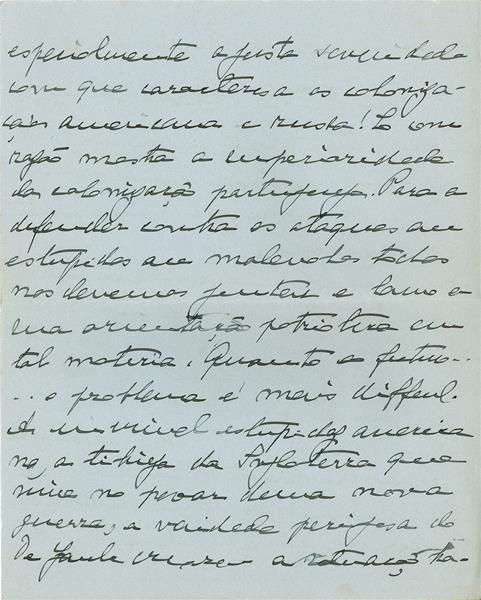 especialmente a justa severidade
com que caracterisa as coloniza-
ções americana e russa! E com
razão mostra a superioridade
da colonização portuguesa. Para a
defender contra os ataques ou
estupidos ou malevolos todos
nos devemos juntar e louvo a
sua orientação patriotica em
tal materia. Quanto a futuro..
... o problema é mais difficil.
A incrivel estupidez america
na, a da Inglaterra que
vive no pavor duma nova
guerra, a vaidade perigosa do
De Gaulle criaram a situação tra-